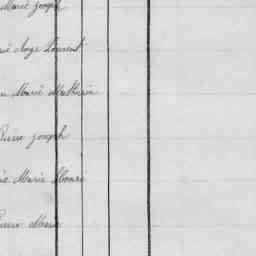 Marie Joseph
Ange Laurent
Marie Mathurin
Pierre Joseph
Marie Honoré
Pierre Marie